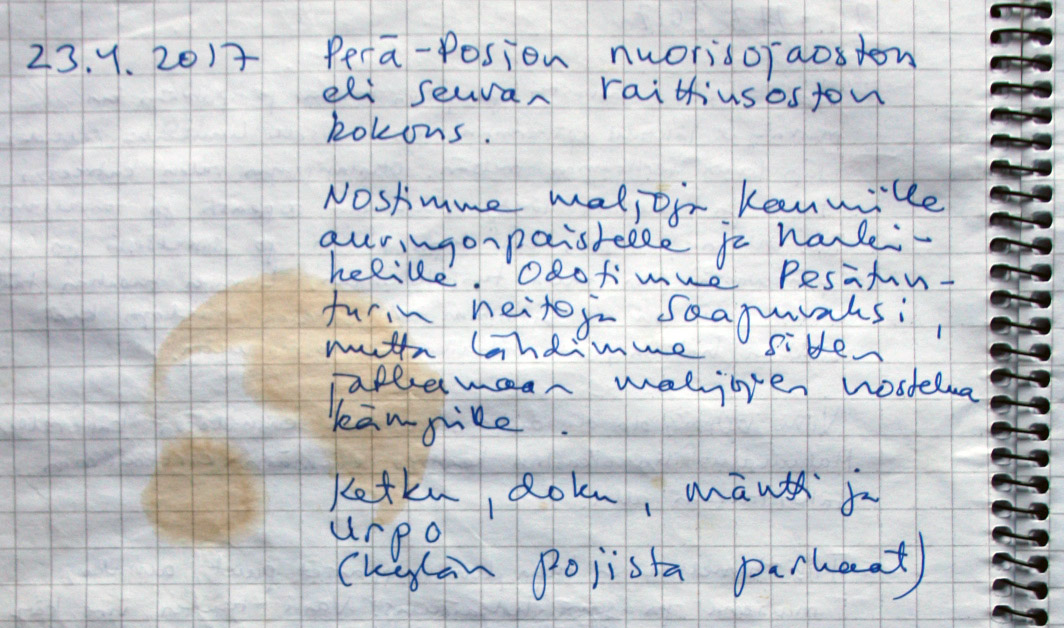 23.4.2017 Perä-Posion nuorisojaoston
eli seuran raittiusoston
kokous.
Nostimme maljoja kauniille
auringonpaisteelle ja hanki-
kelille. Odotimme Pesätun-
turin neitoja saapuvaksi,
mutta lähdimme sitten
jatkamaan maljojen nostelua
kämpille.
Ketku, doku, mäntti ja
urpo
(kylän pojista parhaat)